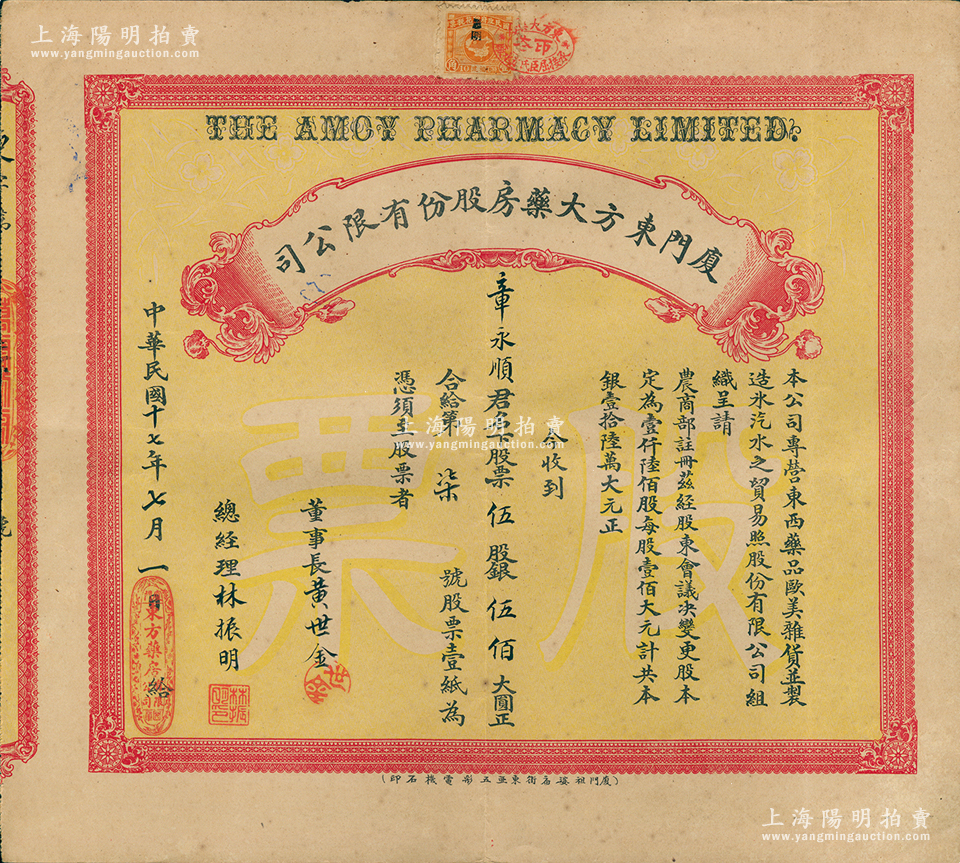 上海陽明拍賣
www.yangmingauction.com
THE AMOY PHARMACY LIMITED.
廈門東方大藥房股份有限公司
本公司專營東西藥品歐美雜貨並製
造氷汽水之貿易照股份有限公司組
織呈請
農商部註冊茲經股東會議決變更股本
定為壹仟陸佰股每股壹佰大元計共本
銀壹拾陸萬大元正
今收到
章永順君
股票伍股銀伍佰大圓正
合給第柒號股票壹紙為
憑須至股票者
董事長黃世金
總經理林振明
中華民國十七年七月一日給
東方藥房
股票
上海陽明拍賣
www.yangmingauction.com
(廈門祖婆廟街東亞五彩電機石印)
上海陽明拍賣
www.yangmingauction.com